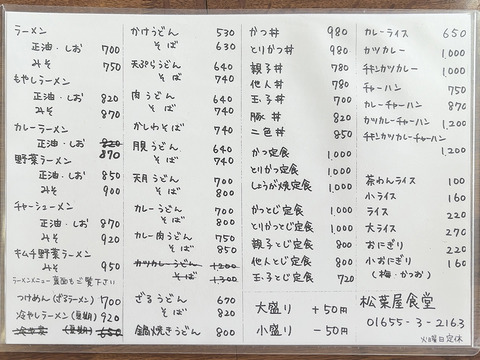 ラーメン
正油・しお 700
みそ 750
もやしラーメン
正油・しお 820
みそ 870
カレーラーメン
正油・しお 820 870
野菜ラーメン
正油・しお 850
みそ 900
チャーシューメン
正油・しお 870
みそ 920
キムチ野菜ラーメン
みそ 950
ラーメンメニュー裏面もご覧下さい
つけめん(ざるラーメン) 700
冷やしラーメン(夏期) 920
冷奴 (夏期) 650
かけうどん 530
そば 630
天ぷらうどん 640
そば 740
肉うどん 640
そば 740
かしわそば 740
月見うどん 640
そば 740
天月うどん 700
そば 800
カレーうどん 700
そば 800
カレー肉うどん 750
そば 850
カツカレーうどん 1,200
そば 1,300
ざるうどん 670
そば 820
鍋焼きうどん 800
かつ丼 980
とりかつ丼 980
親子丼 780
他人丼 780
玉子丼 700
豚丼 820
二色丼 850
かつ定食 1,000
とりかつ定食 1,000
しょうが焼定食 1,000
かつとじ定食 1,000
とりかつとじ定食 1,000
親子とじ定食 800
他人とじ定食 800
玉子とじ定食 720
大盛り +50円
小盛り −50円
カレーライス 650
カツカレー 1,000
チキンカツカレー 1,000
チャーハン 750
カレーチャーハン 870
カツカレーチャーハン 1,200
チキンカツカレーチャーハン
1,200
茶わんライス 100
小ライス 160
ライス 220
大ライス 270
おにぎり 220
小おにぎり 160
(梅・かつお)
松葉屋食堂
01655-3-2163
火曜日定休